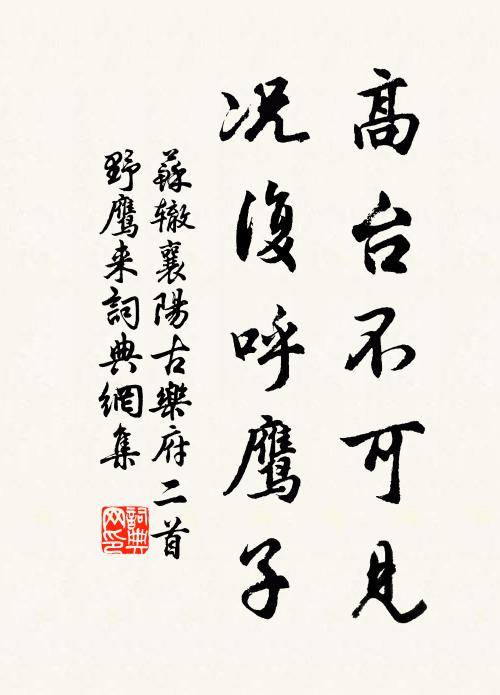 高台不可見
况復呼鹰子
蘇辙襄陽古樂府二首
野鹰来詞典網集
詞典
网印